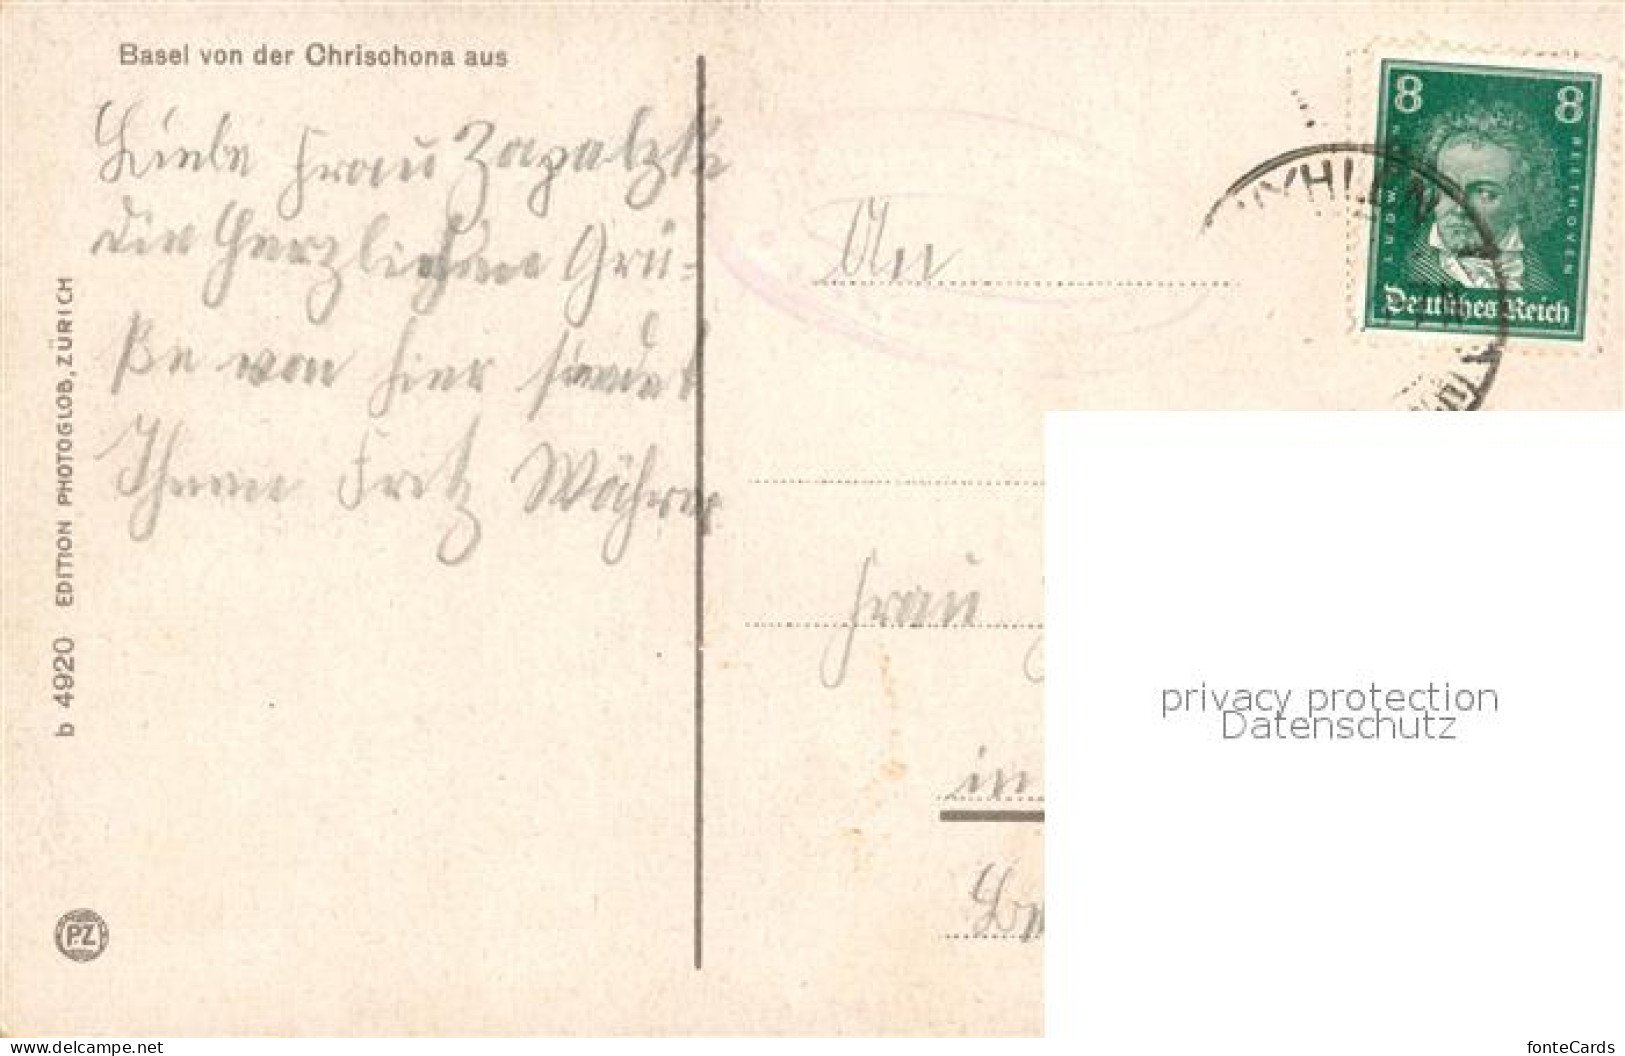 Basel von der Chrischona aus
Liebe Frau Zagalzki
die Herzlichsten Grü-
ße von hier sendet
Ihnen Fritz Währer
b 4920 EDITION PHOTOGLOB, ZÜRICH
PZ
An
Frau
in
8 8
BEETHOVEN
Deutsches Reich
WYHLEN
privacy protection
Datenschutz
www.ansichtskartenversand.com
fonteCards